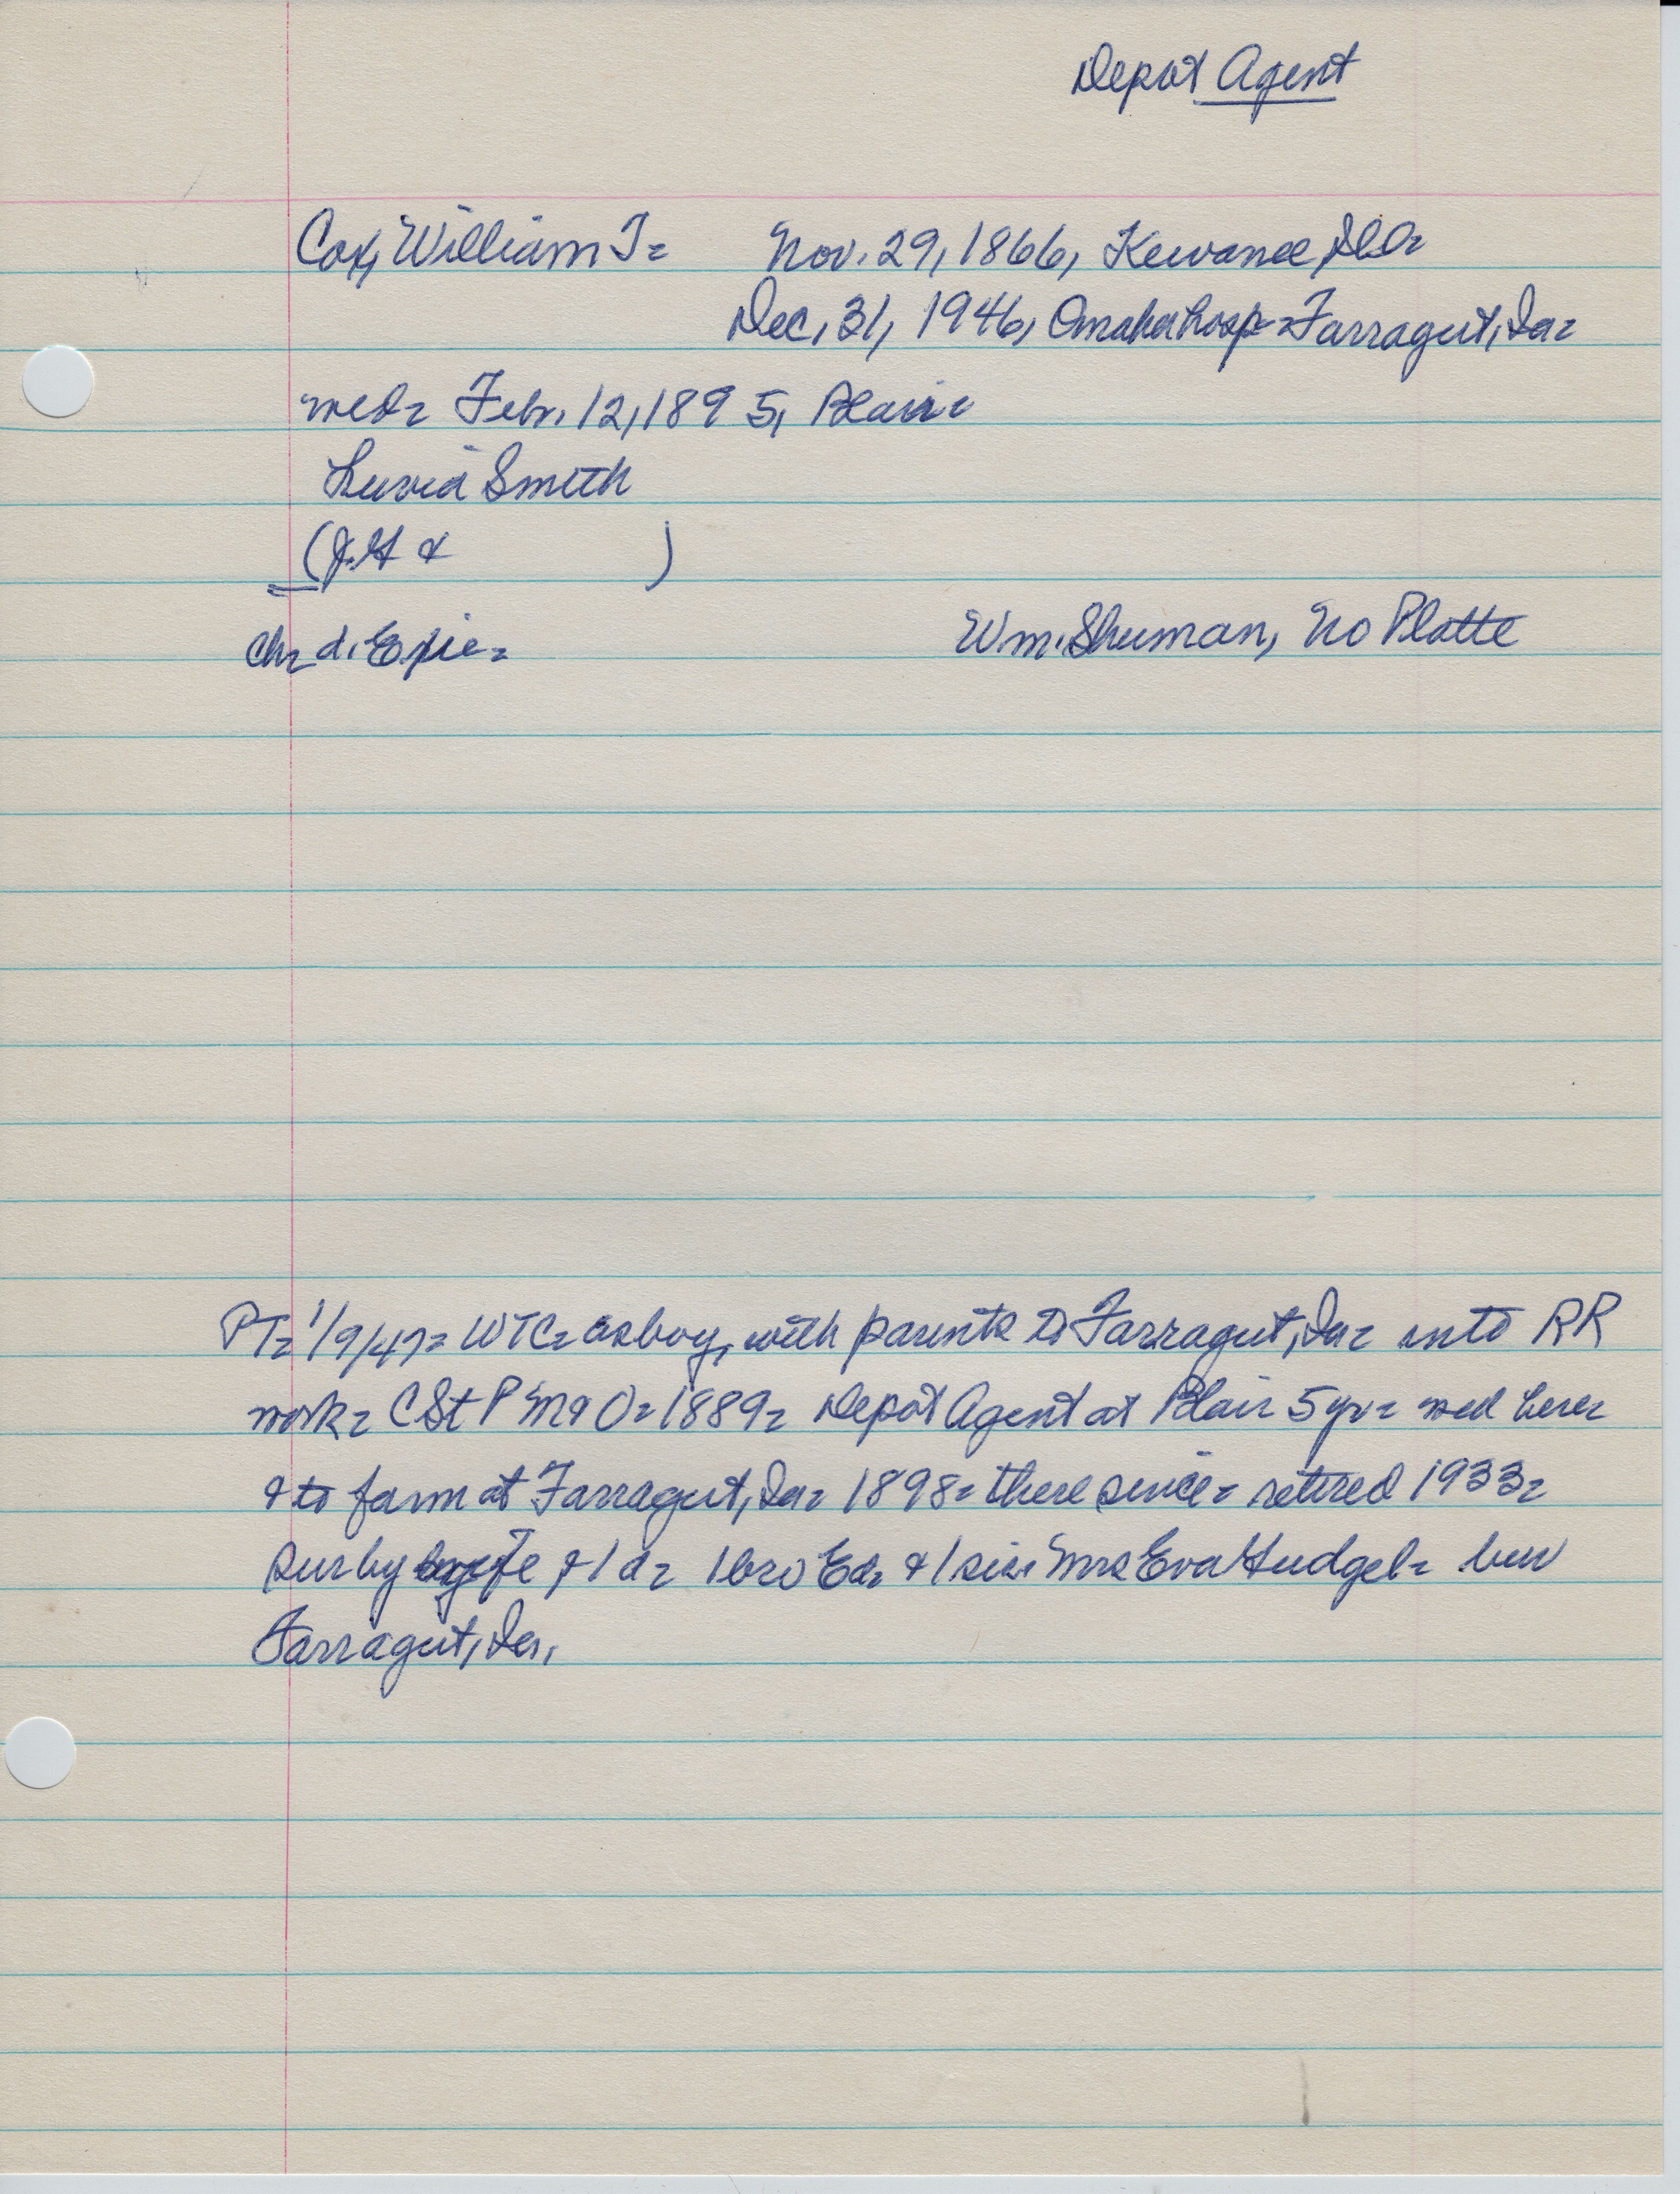 Depot Agent
Cox, William T= Nov. 29, 1866, Kewanee, Ill=
Dec, 31, 1946, Omaha hosp= Farragut, Ia=
med= Febr. 12, 1895, Blair=
Luvia Smith
(J.H & )
ch= d. Effie= Wm. Shuman, No Platte
PT= 1/9/47= WTC= as boy, with parents to Farragut, Ia= into RR
work= C St P M & O= 1889= Depot Agent at Blair 5 yr= med here=
& to farm at Farragut, Ia= 1898= there since= retired 1933=
sur by & 1 d= 1 bro Ed= & 1 sis. Mrs Eva Hudgel= bur
Farragut, Ia.